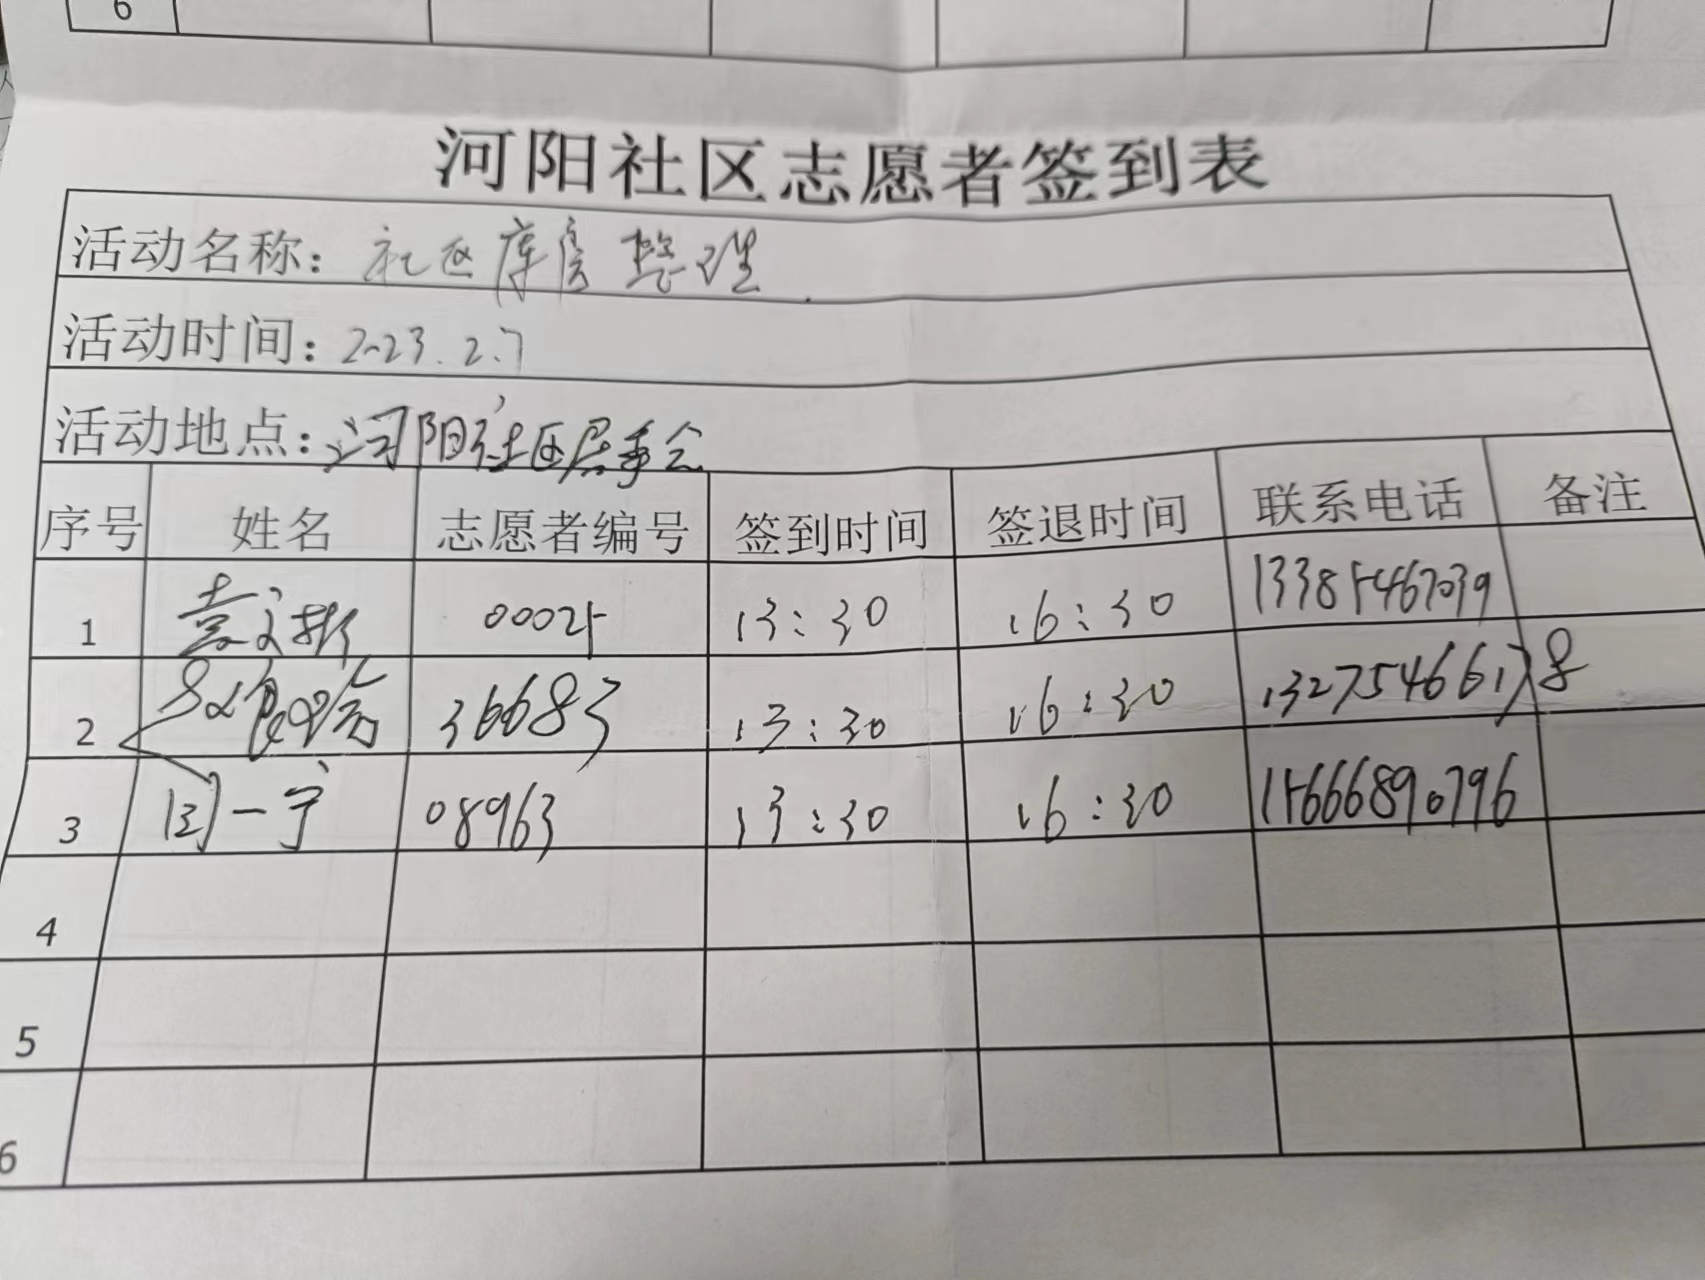 6
河阳社区志愿者签到表
活动名称: 社区库房整理
活动时间: 2023.2.7
活动地点: 河阳社区居委会
序号 姓名 志愿者编号 签到时间 签退时间 联系电话 备注
1 袁文彬 0002 13:30 16:30 13385467039
2 36683 13:30 16:30 13275466178
3 闫一宁 08963 13:30 16:30 15666890796
4
5
6